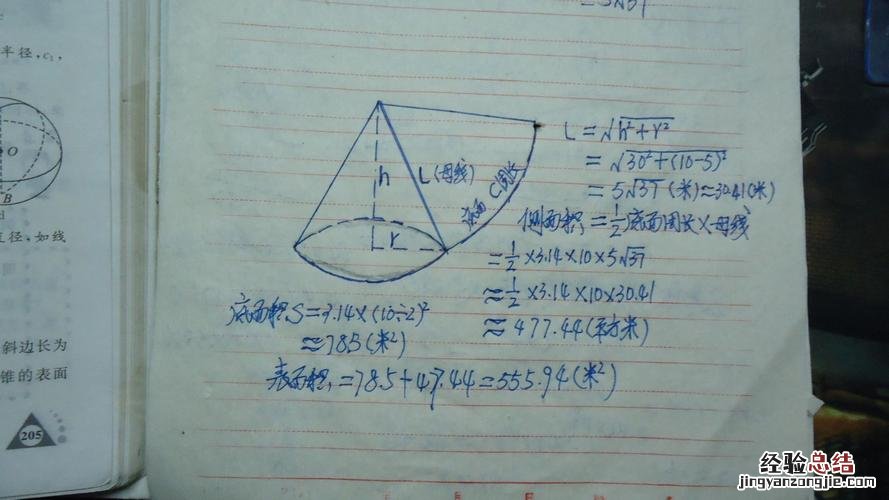 =5√37
半径,c₁,
O
B
d
直径、如线
斜边长为
锥的表面
205
h
r
L(母线)
底面C周长
L=√h²+r²
=√30²+(10-5)²
=5√37(米)≈30.41(米)
侧面积=½底面周长×母线
=½×3.14×10×5√37
≈½×3.14×10×30.41
≈477.44(平方米)
底面积S=3.14×(10÷2)²
≈78.5(米²)
表面积=78.5+47.44=555.94(米²)
经验总结
jingyanzongjie.com